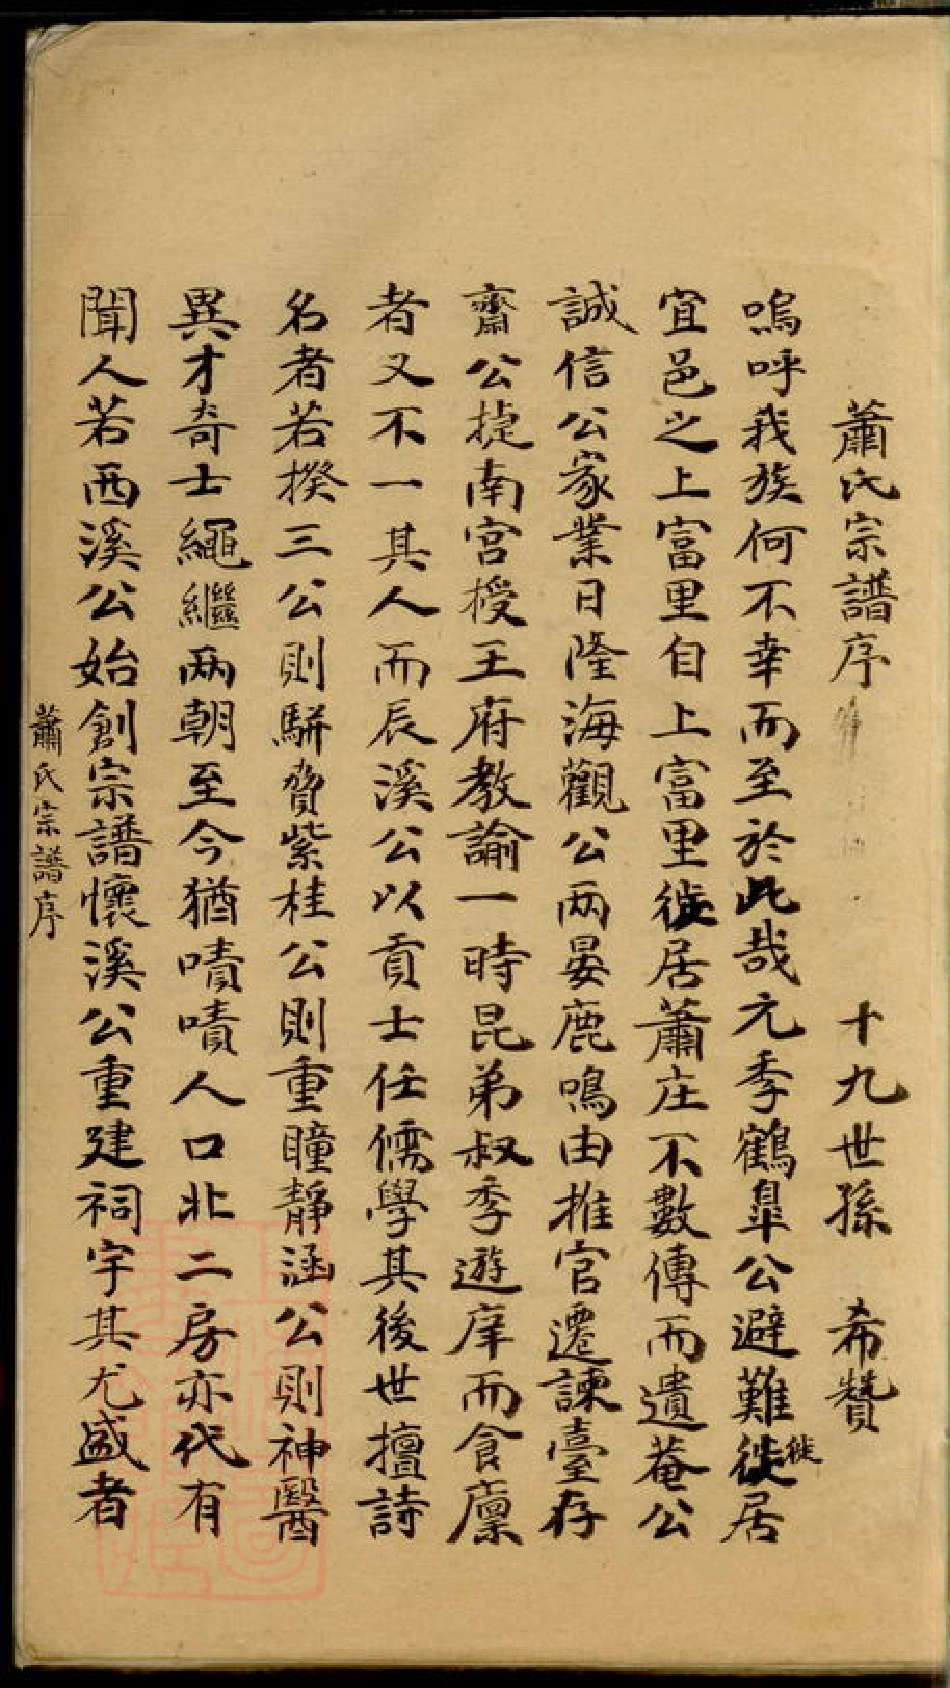 蕭氏宗譜序 十九世孫 希贊
嗚呼我族何不幸而至於此哉元季鶴臯公避難徙徙居
宜邑之上富里自上富里徙居蕭庄不數傳而遺菴公
誠信公家業日隆海觀公兩晏鹿鳴由推官遷諫臺存
齋公捷南宮授王府教諭一時昆弟叔季遊庠而食廩
者又不一其人而辰溪公以貢士任儒學其後世擅詩
名者若揆三公則駢賁紫桂公則重瞳靜涵公則神醫
異才奇士繩繼两朝至今猶嘖嘖人口北二房亦代有
聞人若西溪公始創宗譜懷溪公重建祠宇其尤盛者
蕭氏宗譜序